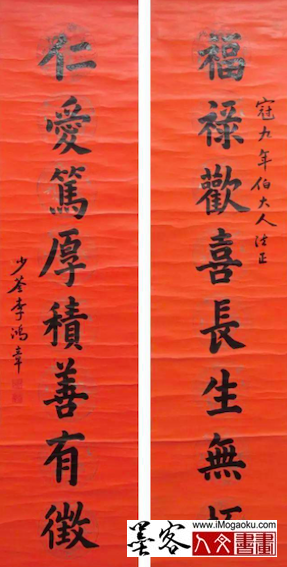 冠九年伯大人法正
福祿歡喜長生無
仁愛篤厚積善有徵
少荃李鴻章
www.iMogaoku.com
墨客
人文書畫